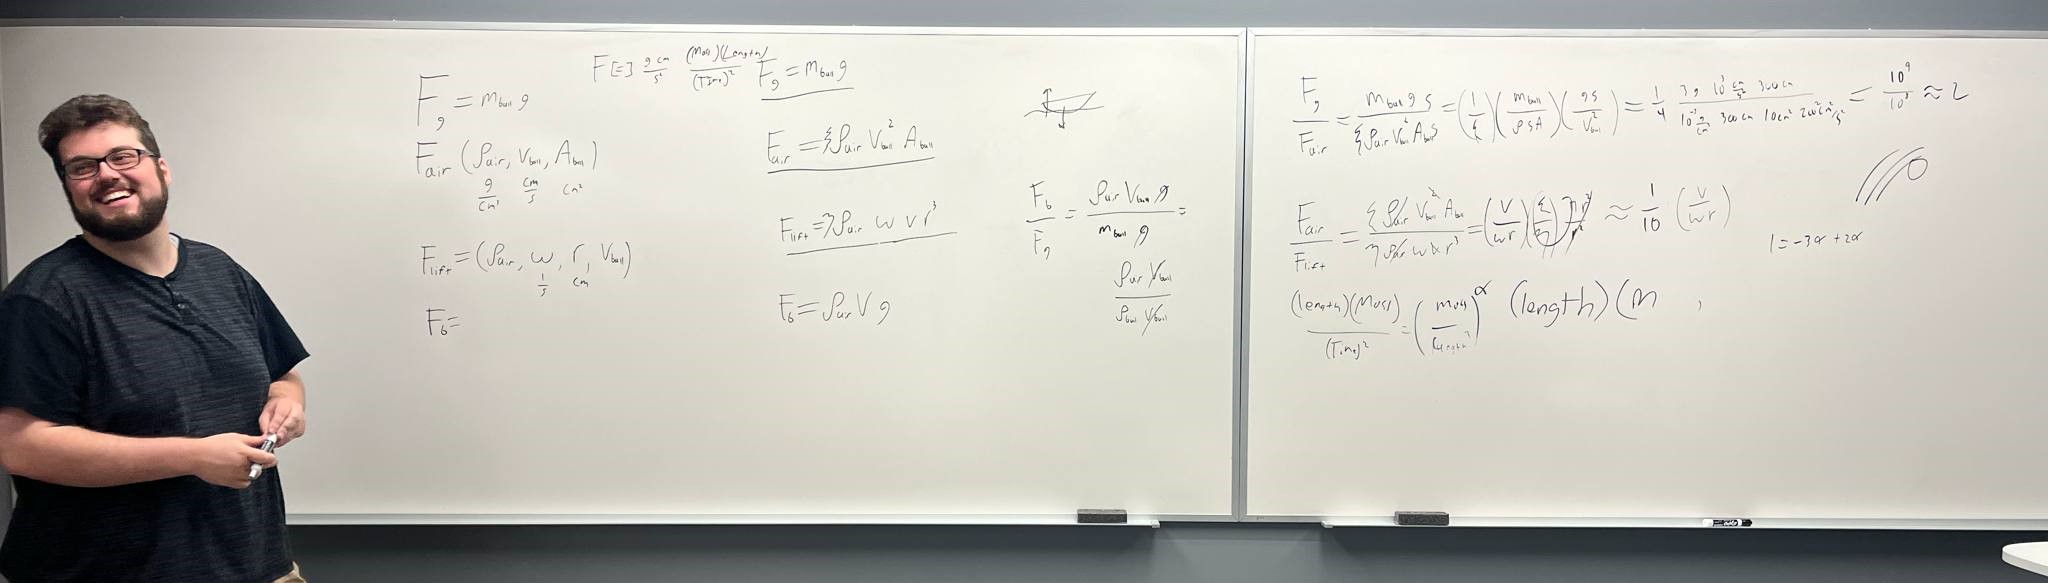 F [=] g cm / s² (Mass)(Length) / (Time)²
F_g = m_ball g
F_air (ρ_air, V_ball, A_ball)
g/cm³ cm/s cm²
F_lift = (ρ_air, ω, r, V_ball)
1/s cm
F_b =
F_g = m_ball g
F_air = ξ ρ_air V_ball² A_ball
F_lift = η ρ_air ω v r³
F_b = ρ_air V g
F_b / F_g = ρ_air V_ball g / m_ball g =
ρ_air V_ball / ρ_ball V_ball
F_g / F_air = m_ball g s / ξ ρ_air V_ball² A_ball s = (1/ξ) (m_ball / ρ s A) (g s / V_ball²) = 1/4 3 g 10³ cm/s² 300 cm / 10⁻³ g/cm³ 300 cm 10 cm² 200² cm²/s² = 10⁹ / 10⁸ ≈ 2
F_air / F_lift = ξ ρ_air V_ball² A_ball / η ρ_air ω v r³ = (V / ωr) (ξ / η) π r² / r² ≈ 1/10 (V / ωr)
1 = -3α + 2α
(length)(Mass) / (Time)² = (mass / (length)³)^α (length) (m